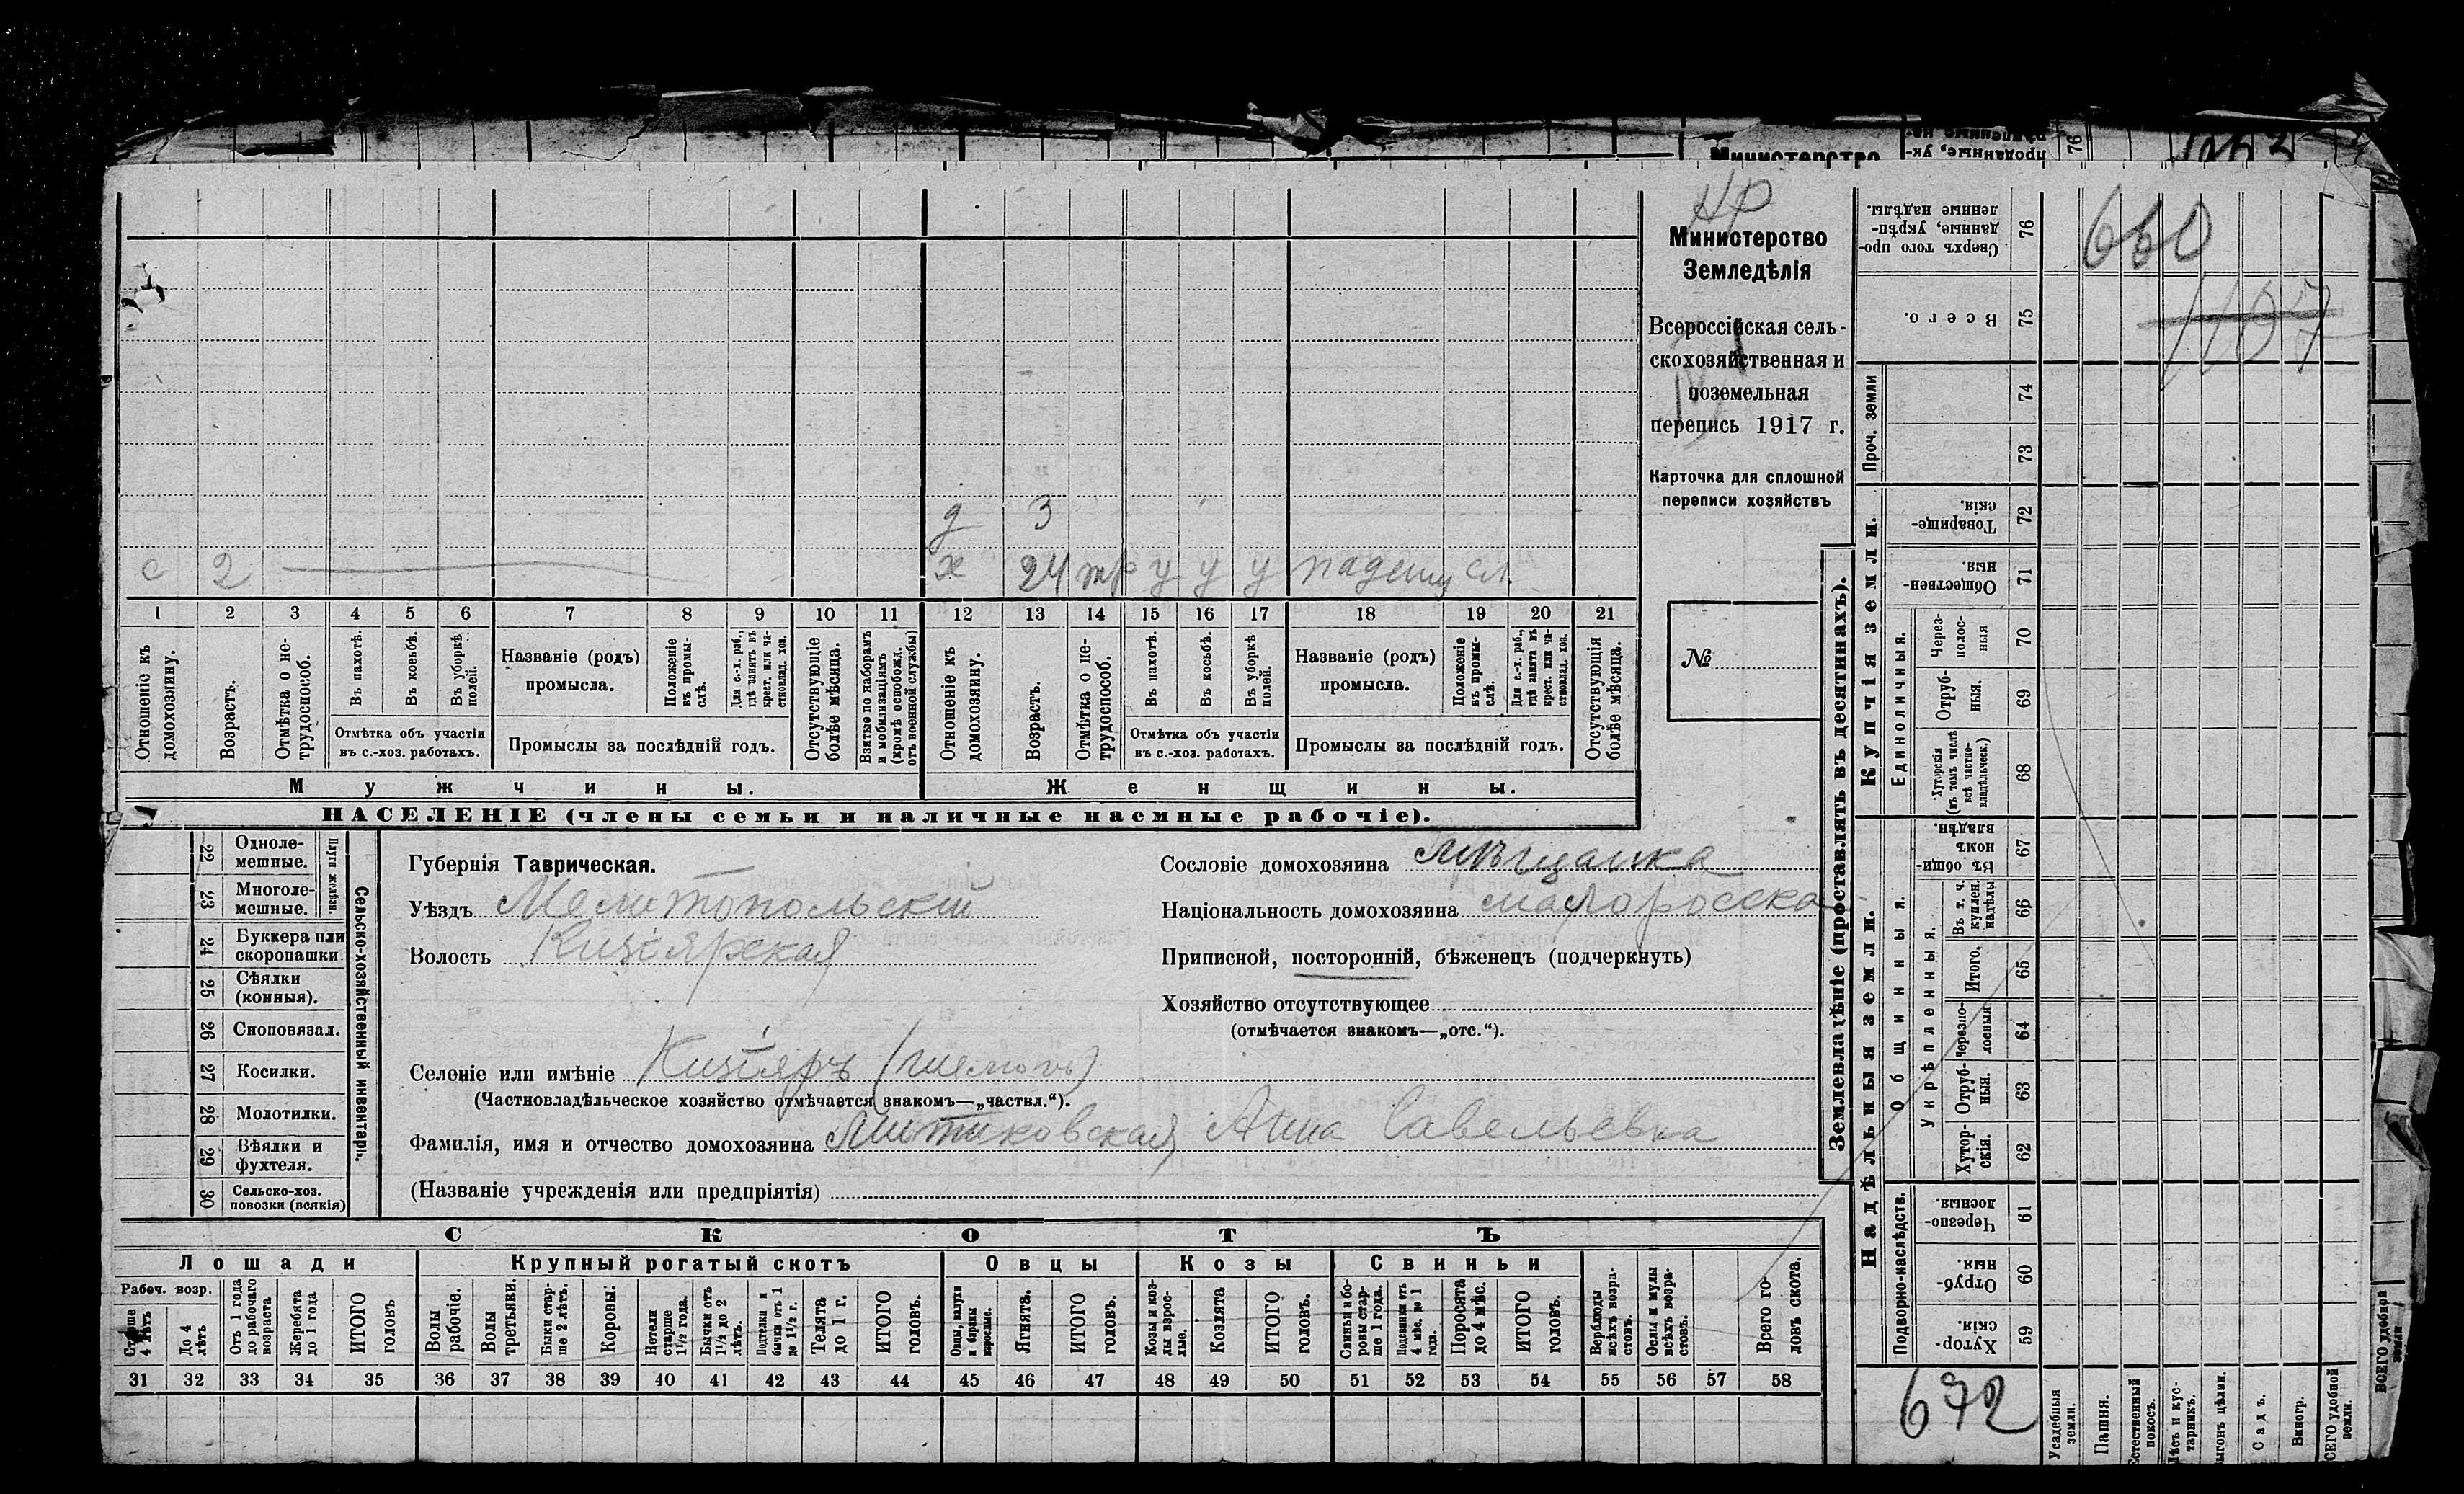 проданные, ук-
76
Министерство
НР
Министерство
Земледѣлія
Всероссійская сель-
скохозяйственная и
поземельная
перепись 1917 г.
Карточка для сплошной
переписи хозяйствъ
№
д 3
с 2
х 24 тр у у у
1 2 3 4 5 6 7 8 9 10 11 12 13 14 15 16 17 18 19 20 21
Отношеніе къ домохозяину.
Возрастъ.
Отмѣтка о не-трудоспособ.
Въ пахотѣ.
Въ косьбѣ.
Въ уборкѣ полей.
Отмѣтка объ участіи
въ с.-хоз. работахъ.
Названіе (родъ)
промысла.
Положеніе въ промы-слѣ.
Для с.-х. раб., гдѣ занятъ въ крест. или ча-стновлад. хоз.
Промыслы за послѣдній годъ.
Отсутствующіе болѣе мѣсяца.
Взятые по наборамъ и мобилизаціямъ (кромѣ освобожд. отъ военной службы)
Отношеніе къ домохозяину.
Возрастъ.
Отмѣтка о не-трудоспособ.
Въ пахотѣ.
Въ косьбѣ.
Въ уборкѣ полей.
Отмѣтка объ участіи
въ с.-хоз. работахъ.
Названіе (родъ)
промысла.
Положеніе въ промы-слѣ.
Для с.-х. раб., гдѣ занята въ крест. или ча-стновлад. хоз.
Промыслы за послѣдній годъ.
Отсутствующія болѣе мѣсяца.
Мужчины.
Женщины.
НАСЕЛЕНІЕ (члены семьи и наличные наемные рабочіе).
22 Одноле-мешные.
23 Многоле-мешные.
Плуги желѣзн.
24 Буккера или скоропашки
25 Сѣялки (конныя).
26 Сноповязал.
27 Косилки.
28 Молотилки.
29 Вѣялки и фухтеля.
30 Сельско-хоз. повозки (всякія)
Сельско-хозяйственный инвентарь.
Губернія Таврическая.
Уѣздъ Мелитопольскій
Волость Кизіярская
Селеніе или имѣніе Кизіяръ
(Частновладѣльческое хозяйство отмѣчается знакомъ—„частвл.“).
Фамилія, имя и отчество домохозяина Митиковская Анна Савельевна
(Названіе учрежденія или предпріятія)
Сословіе домохозяина мѣщанка
Національность домохозяина малоросска
Приписной, посторонній, бѣженецъ (подчеркнуть)
Хозяйство отсутствующее
(отмѣчается знакомъ—„отс.“).
СКОТЪ
Лошади
Крупный рогатый скотъ
Овцы
Козы
Свиньи
Рабоч. возр.
Старше 4 лѣтъ
До 4 лѣтъ
Отъ 1 года до рабочаго возраста
Жеребята до 1 года
ИТОГО головъ
Волы рабочіе.
Волы третьяки.
Быки стар-ше 2 лѣтъ.
Коровы.
Нетели старше 1½ года.
Бычки отъ 1½ до 2 лѣтъ.
Подтелки и бычки отъ 1 до 1½ г.
Телята до 1 г.
ИТОГО головъ.
Овцы, валухи и бараны взрослые.
Ягнята.
ИТОГО головъ.
Козы и коз-лы взрос-лые.
Козлята
ИТОГО головъ.
Свиньи и бо-ровы стар-ше 1 года.
Подсвинки отъ 4 мѣс. до 1 года.
Поросята до 4 мѣс.
ИТОГО головъ.
Верблюды всѣхъ возра-стовъ.
Ослы и мулы всѣхъ возра-стовъ.
Всего го-ловъ скота.
31 32 33 34 35 36 37 38 39 40 41 42 43 44 45 46 47 48 49 50 51 52 53 54 55 56 57 58
Землевладѣніе (проставлять въ десятинахъ).
Надѣльныя земли.
Купчія земли.
Проч. земли
Подворно-наслѣдств.
Общинныя.
Укрѣпленныя.
Единоличныя.
76 Сверхъ того про-данные, укрѣп-ленные надѣлы.
75 Всего.
74
73
72 Товарище-скія
71 Обществен-ныя.
70 Через-полос-ныя
69 Отруб-ныя.
68 Хуторскія (въ томъ числѣ всѣ частно-владѣльческ.)
67 Въ общи-номъ владѣн.
66 Въ т. ч. куплен. надѣлы
65 Итого.
64 Черезпо-лосныя
63 Отруб-ныя.
62 Хутор-скія.
61 Черезпо-лосныя
60 Отруб-ныя
59 Хутор-скія.
660
1107
672
Усадебныя земли.
Пашня.
Естественный покосъ.
Лѣсъ и кус-тарникъ.
Выгонъ цѣлин.
Садъ.
Виногр.
ВСЕГО удобной земли.
ВСЕГО удобной земли